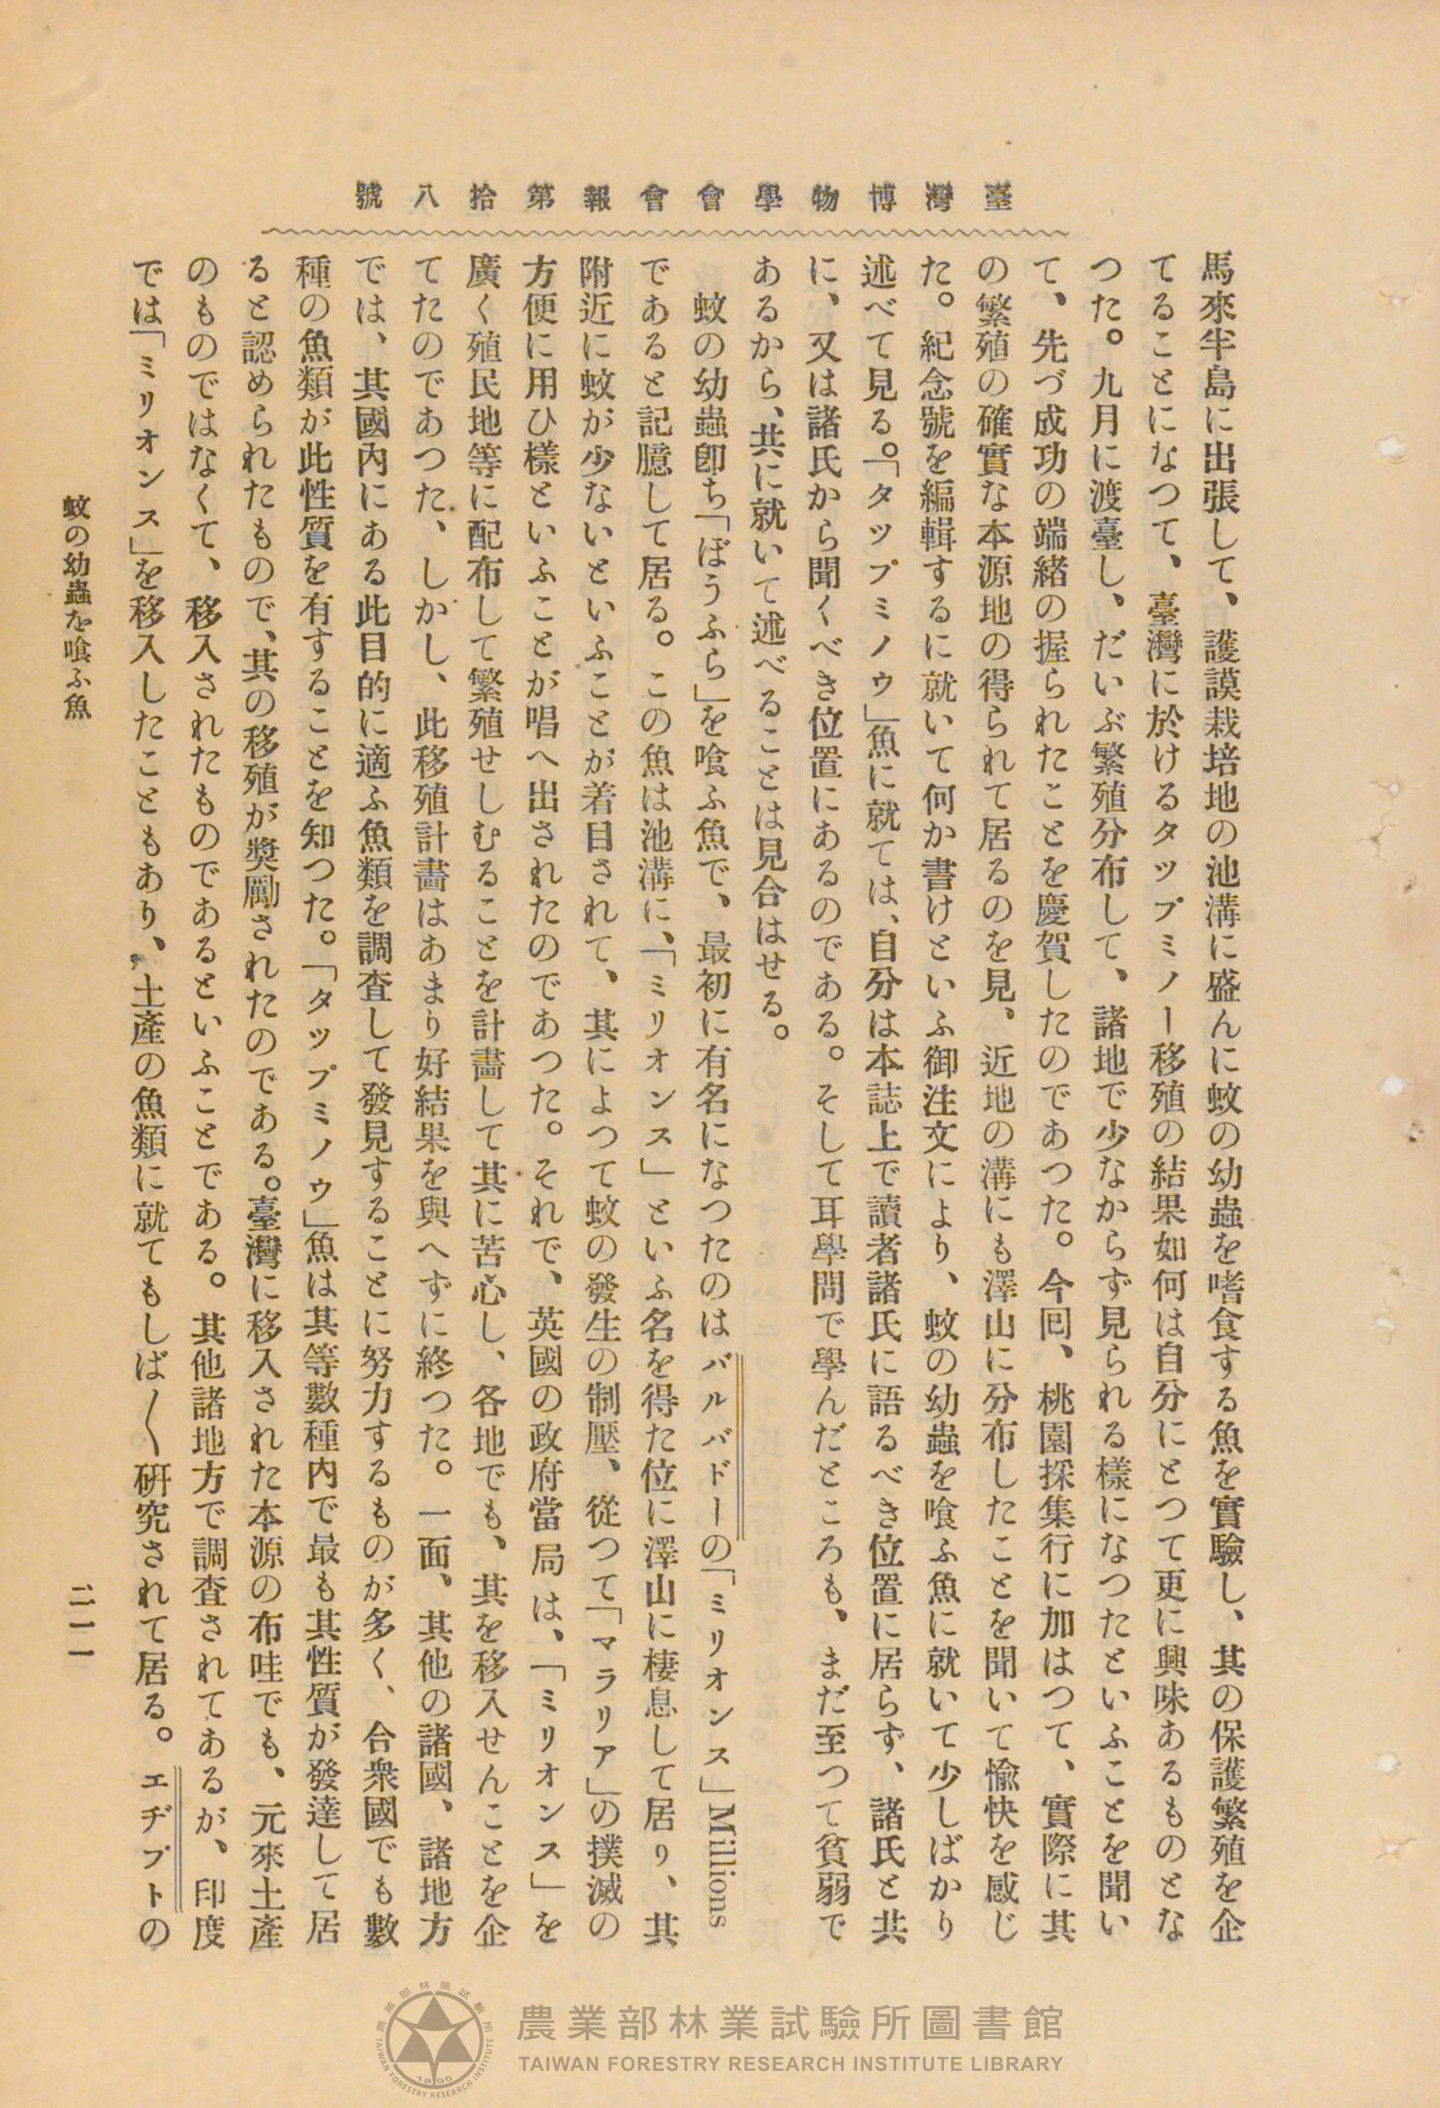 臺灣博物學會會報第拾八號
馬來半島に出張して、護謨栽培地の池溝に盛んに蚊の幼蟲を嗜食する魚を實驗し、其の保護繁殖を企
てることになつて、臺灣に於けるタップミノー移殖の結果如何は自分にとつて更に興味あるものとな
つた。九月に渡臺し、だいぶ繁殖分布して、諸地で少なからず見られる樣になつたといふことを聞い
て、先づ成功の端緒の握られたことを慶賀したのであつた。今回、桃園採集行に加はつて、實際に其
の繁殖の確實な本源地の得られて居るのを見、近地の溝にも澤山に分布したことを聞いて愉快を感じ
た。紀念號を編輯するに就いて何か書けといふ御注文により、蚊の幼蟲を喰ふ魚に就いて少しばかり
述べて見る。「タップミノウ」魚に就ては、自分は本誌上で讀者諸氏に語るべき位置に居らず、諸氏と共
に、又は諸氏から聞くべき位置にあるのである。そして耳學問で學んだところも、まだ至つて貧弱で
あるから、共に就いて述べることは見合はせる。
蚊の幼蟲卽ち「ぼうふら」を喰ふ魚で、最初に有名になつたのはバルバドーの「ミリオンス」Millions
であると記臆して居る。この魚は池溝に、「ミリオンス」といふ名を得た位に澤山に棲息して居り、其
附近に蚊が少ないといふことが着目されて、其によつて蚊の發生の制壓、從つて「マラリア」の撲滅の
方便に用ひ樣といふことが唱へ出されたのであつた。それで、英國の政府當局は、「ミリオンス」を
廣く殖民地等に配布して繁殖せしむることを計畫して其に苦心し、各地でも、其を移入せんことを企
てたのであつた、しかし、此移殖計畫はあまり好結果を與へずに終つた。一面、其他の諸國、諸地方
では、其國內にある此目的に適ふ魚類を調査して發見することに努力するものが多く、合衆國でも數
種の魚類が此性質を有することを知つた。「タップミノウ」魚は其等數種內で最も其性質が發達して居
ると認められたもので、其の移殖が奬勵されたのである。臺灣に移入された本源の布哇でも、元來土產
のものではなくて、移入されたものであるといふことである。其他諸地方で調査されてあるが、印度
では「ミリオンス」を移入したこともあり、土產の魚類に就てもしば〱硏究されて居る。エヂプトの
蚊の幼蟲を喰ふ魚
二一一
農業部林業試驗所圖書館
TAIWAN FORESTRY RESEARCH INSTITUTE LIBRARY
農業部林業試驗所
TAIWAN FORESTRY RESEARCH INSTITUTE
1896